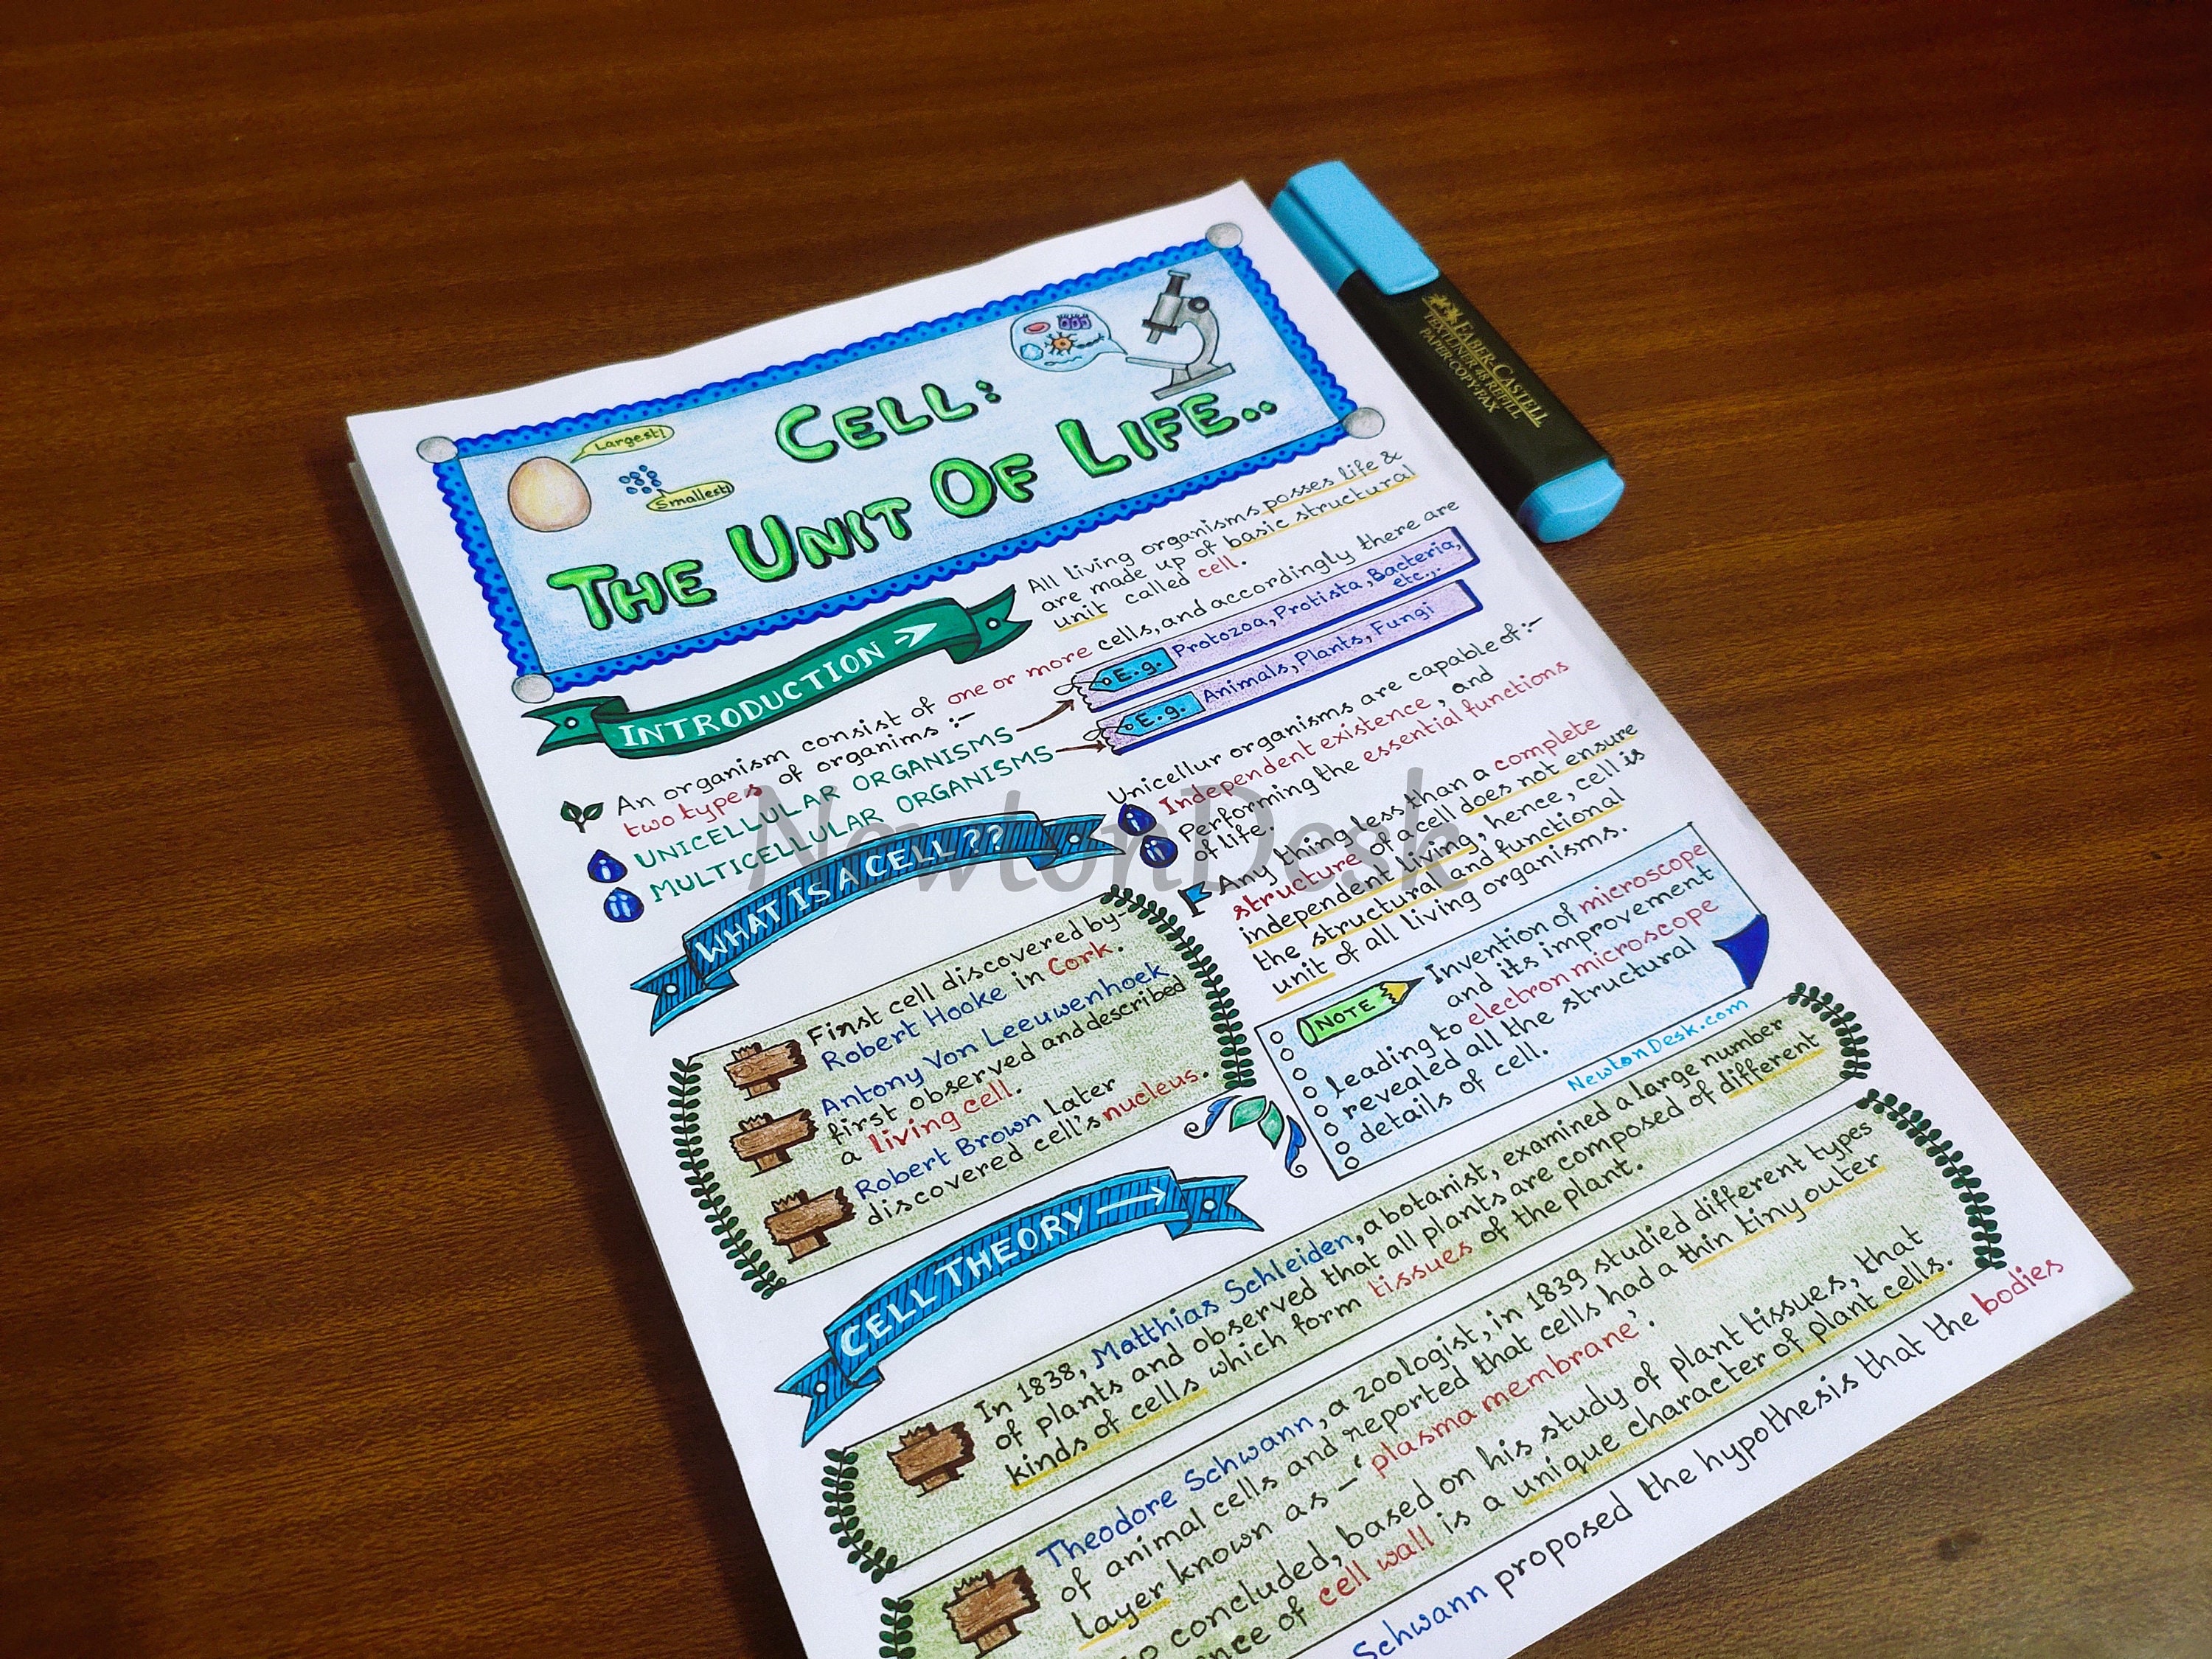 Largest!
Smallest!
CELL:
THE UNIT OF LIFE..
INTRODUCTION
All living organisms posses life &
are made up of basic structural
unit called cell.
An organism consist of one or more cells, and accordingly there are
two types of organims :-
i UNICELLULAR ORGANISMS
E.g. Protozoa, Protista, Bacteria,
etc.,.
ii MULTICELLULAR ORGANISMS
E.g. Animals, Plants, Fungi
WHAT IS A CELL??
First cell discovered by
Robert Hooke in Cork.
Antony Von Leeuwenhoek
first observed and described
a living cell.
Robert Brown later
discovered cell's nucleus.
Unicellur organisms are capable of:-
i Independent existence, and
ii Performing the essential functions
of life.
Any thing less than a complete
structure of a cell does not ensure
independent living, hence, cell is
the structural and functional
unit of all living organisms.
NOTE
Invention of microscope
and its improvement
leading to electron microscope
revealed all the structural
details of cell.
NewtonDesk.com
CELL THEORY
In 1838, Matthias Schleiden, a botanist, examined a large number
of plants and observed that all plants are composed of different
kinds of cells which form tissues of the plant.
Theodore Schwann, a zoologist, in 1839 studied different types
of animal cells and reported that cells had a thin tiny outer
layer known as - 'plasma membrane'.
concluded, based on his study of plant tissues, that
of cell wall is a unique character of plant cells.
Schwann proposed the hypothesis that the bodies
NewtonDesk
FABER-CASTELL
TEXTLINER 48 REFILL
PAPER·COPY·FAX